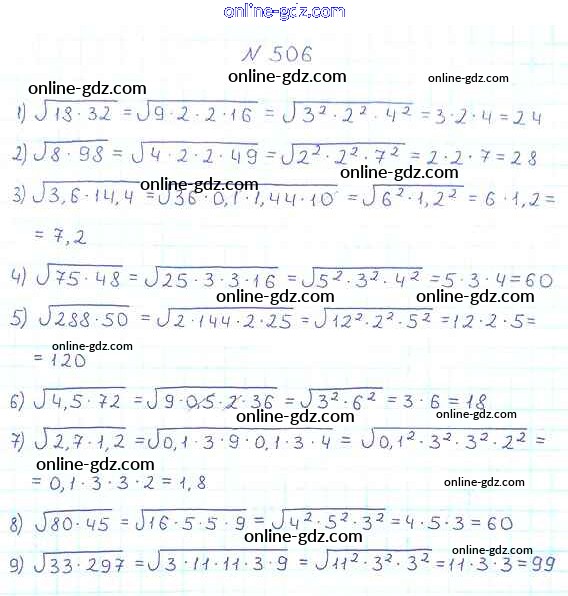 online-gdz.com
N 506
online-gdz.com online-gdz.com
1) √18·32 = √9·2·2·16 = √3²·2²·4² = 3·2·4 = 24
online-gdz.com online-gdz.com
2) √8·98 = √4·2·2·49 = √2²·2²·7² = 2·2·7 = 28
online-gdz.com online-gdz.com
3) √3,6·14,4 = √36·0,1·1,44·10 = √6²·1,2² = 6·1,2 =
= 7,2
online-gdz.com
4) √75·48 = √25·3·3·16 = √5²·3²·4² = 5·3·4 = 60
online-gdz.com online-gdz.com
5) √288·50 = √2·144·2·25 = √12²·2²·5² = 12·2·5 =
online-gdz.com
= 120
online-gdz.com
6) √4,5·72 = √9·0,5·2·36 = √3²·6² = 3·6 = 18
online-gdz.com online-gdz.com
7) √2,7·1,2 = √0,1·3·9·0,1·3·4 = √0,1²·3²·3²·2² =
online-gdz.com
= 0,1·3·3·2 = 1,8
online-gdz.com
online-gdz.com
8) √80·45 = √16·5·5·9 = √4²·5²·3² = 4·5·3 = 60
online-gdz.com
online-gdz.com
9) √33·297 = √3·11·11·3·9 = √11²·3²·3² = 11·3·3 = 99
online-gdz.com